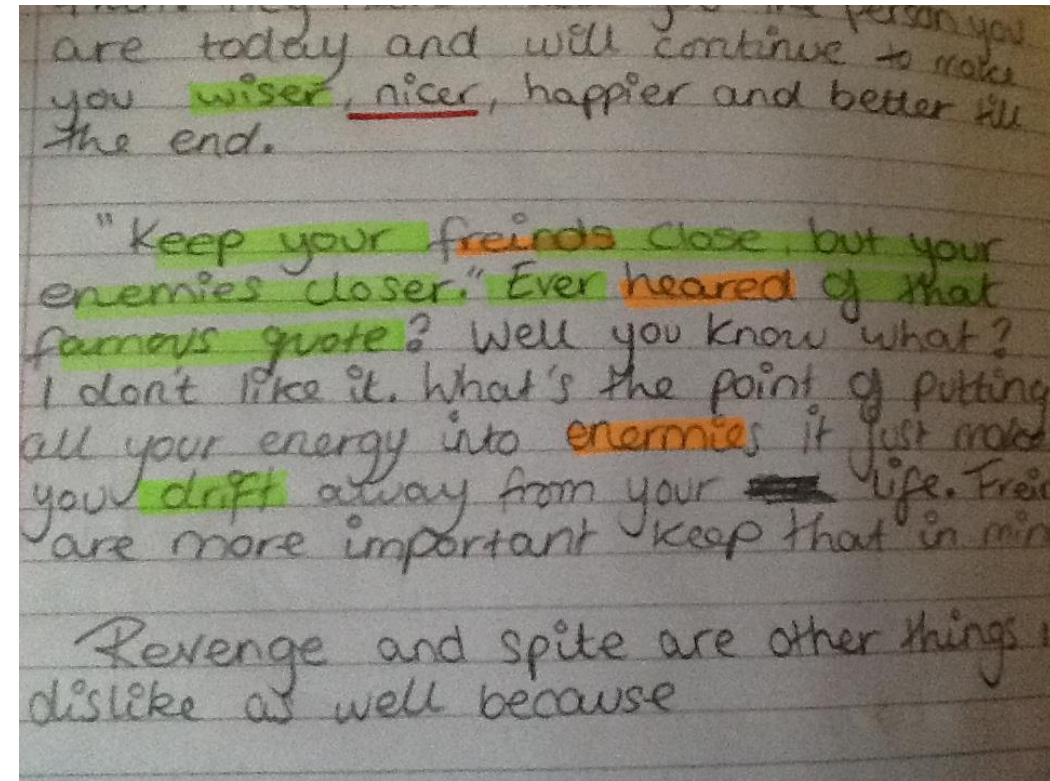 person you
are today and will continue to make
you wiser, nicer, happier and better till
the end.
"Keep your freinds close, but your
enemies closer." Ever heared of that
famous quote? Well you know what?
I don't like it. What's the point of putting
all your energy into enermies it just make
you drift away from your life. Freid
are more important keep that in min
Revenge and spite are other things
dislike as well because